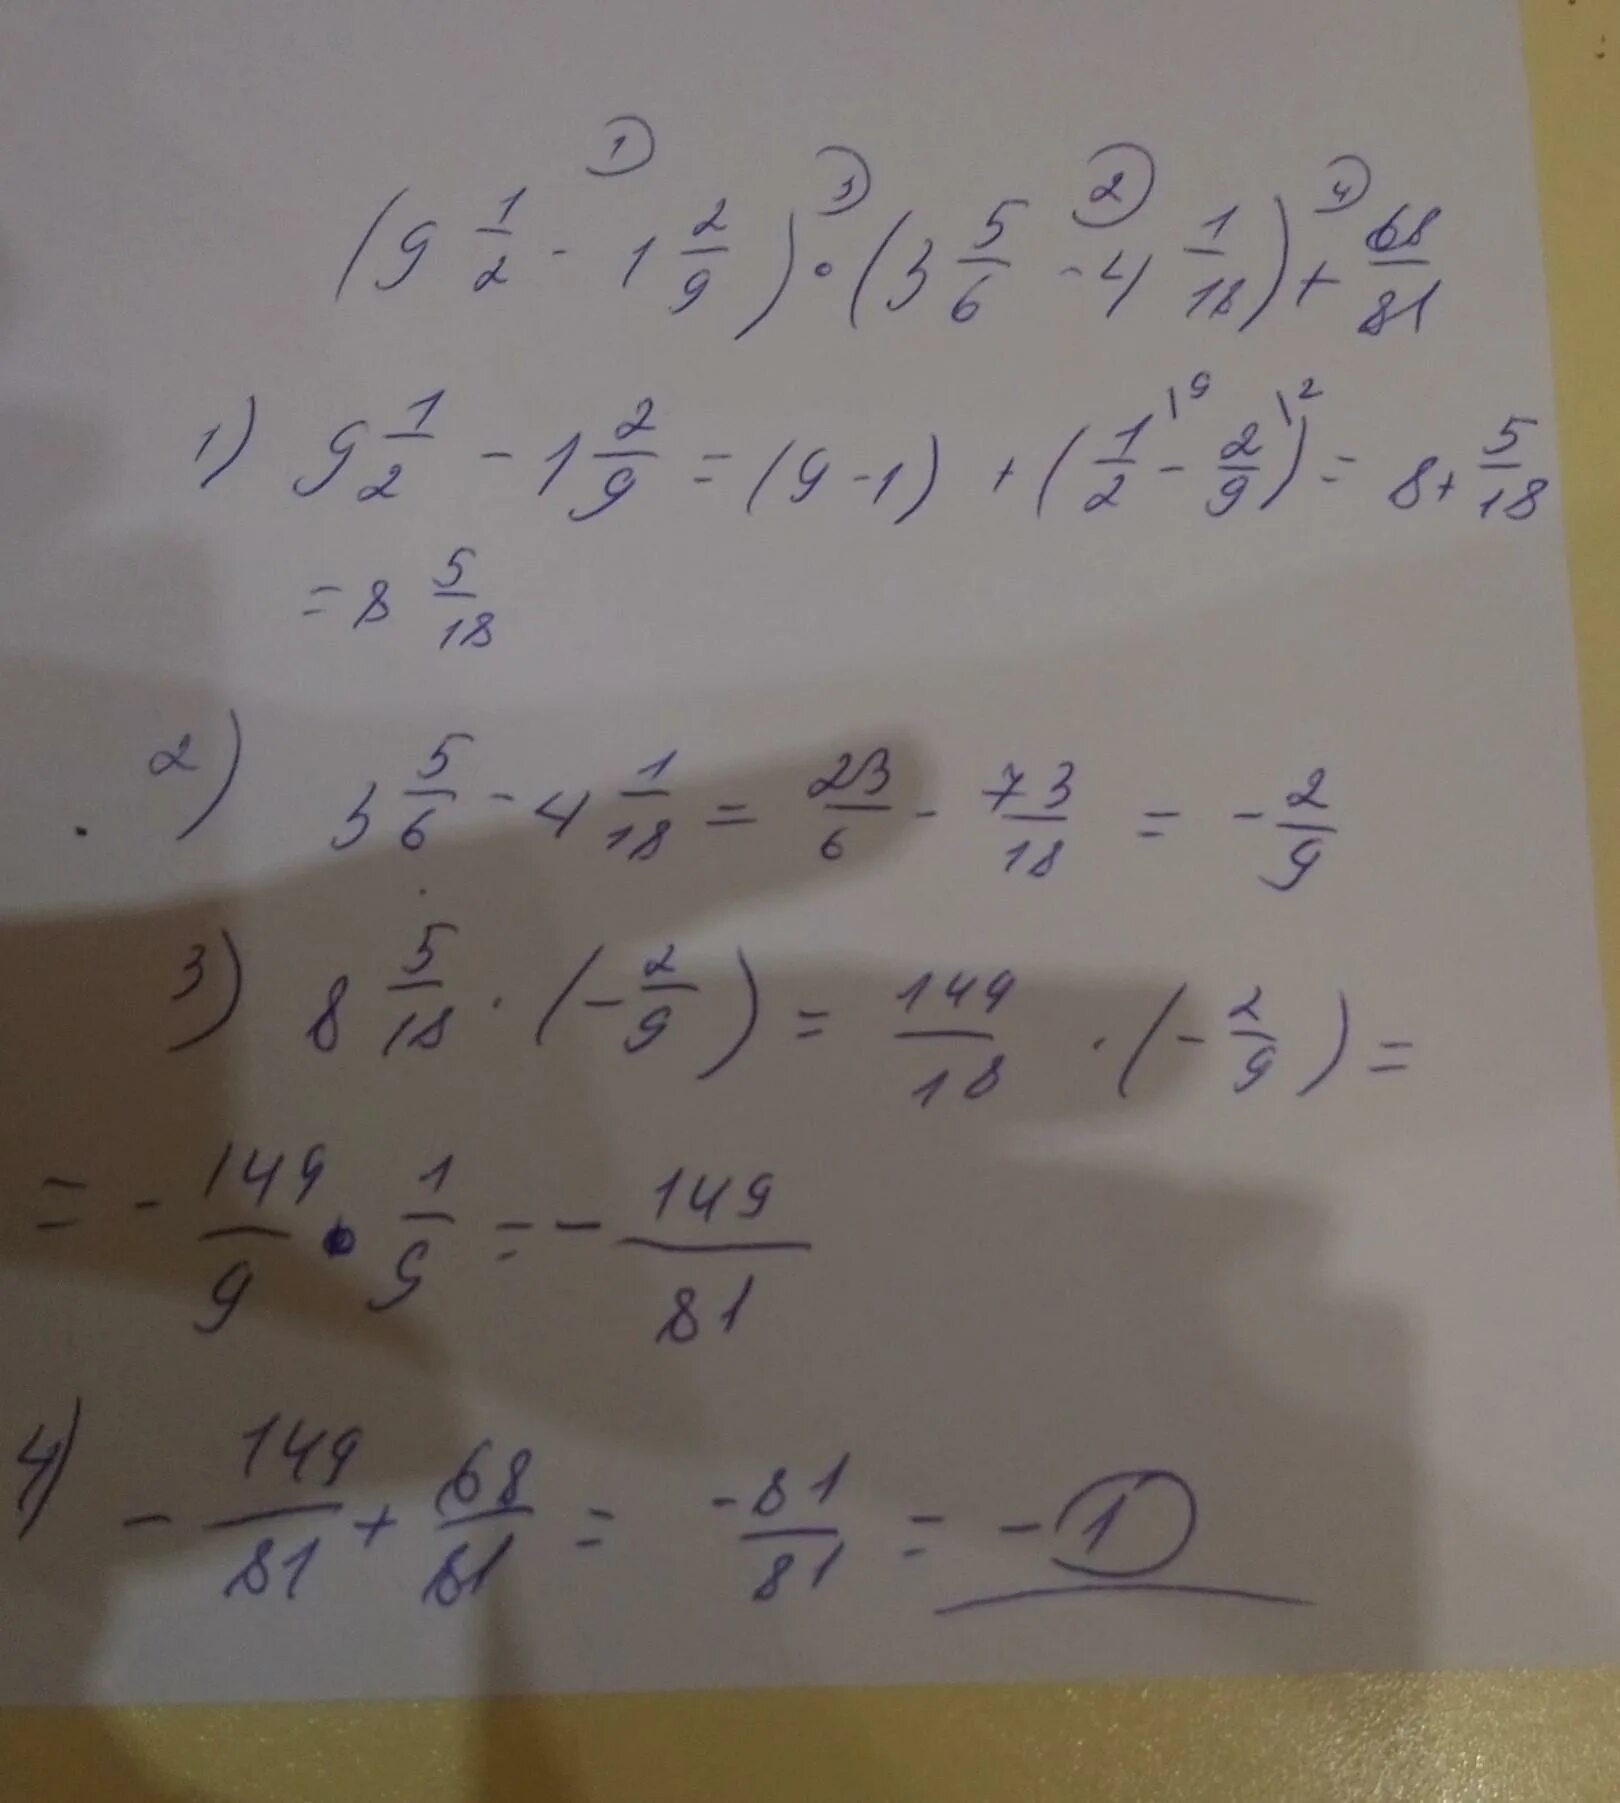 ① ③ ② ④
(9 1/2 - 1 2/9) · (3 5/6 - 4 1/18) + 68/81
1) 9 1/2 - 1 2/9 = (9 - 1) + (1/2 \9 - 2/9 \2) = 8 + 5/18
= 8 5/18
2) 3 5/6 - 4 1/18 = 23/6 - 73/18 = - 2/9
3) 8 5/18 · (- 2/9) = 149/18 · (- 2/9) =
= - 149/9 · 1/9 = - 149/81
4) - 149/81 + 68/81 = -81/81 = - 1